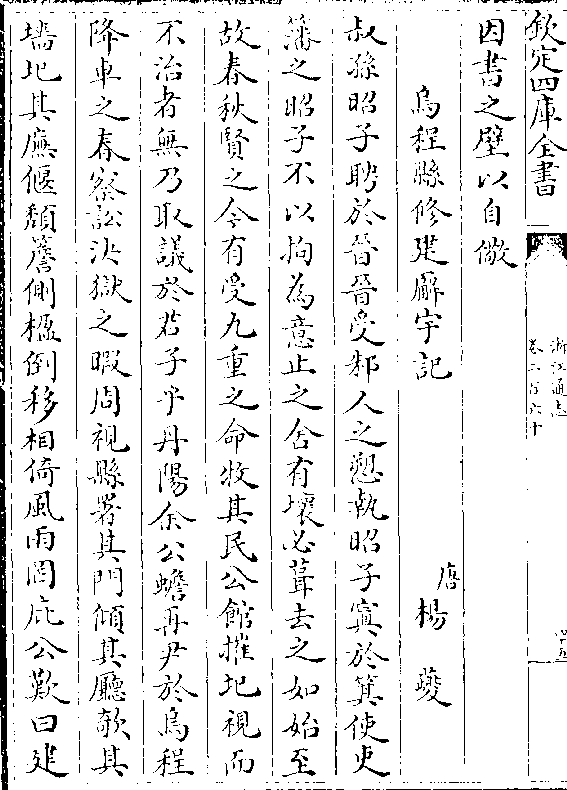 欽定四庫全書
浙江通志
卷二百六十
四五
因書之壁以自儆
烏程縣修建廨宇記
唐楊夔
叔孫昭子聘於晉晉受邾人之愬執昭子寘於箕使吏
藩之昭子不以拘為意止之舍有壞必葺去之如始至
故春秋賢之今有受九重之命牧其民公館摧圯視而
不治者無乃取議於君子乎丹陽余公蟾再尹於烏程
降車之春察訟決獄之暇周視縣署其門傾其廳欹其
墻圯其廡偃頹簷側楹倒移相倚風雨罔庇公歎曰建